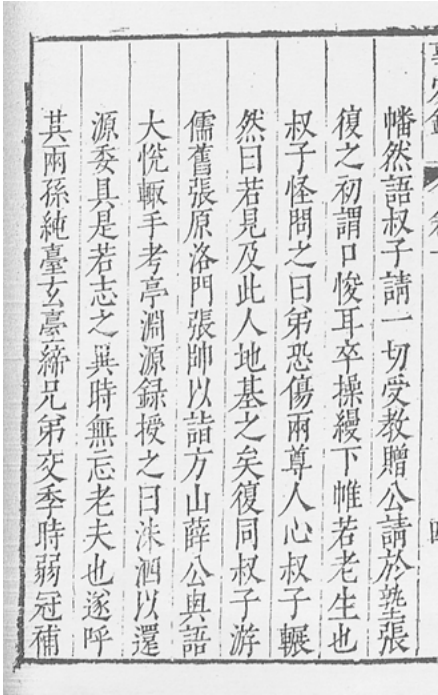 幡然語叔子請一切受教贈公請於塾張
復之初謂口悛耳卒操縵下帷若老生也
叔子怪問之曰弟恐傷兩尊人心叔子輾
然曰若見及此人地基之矣復同叔子游
儒舊張原洛門張帥以詣方山薛公與語
大悅輙手考亭淵源録授之曰洙泗以還
源委具是若志之異時無忘老夫也遂呼
其兩孫純臺玄臺締兄弟交季時弱冠補